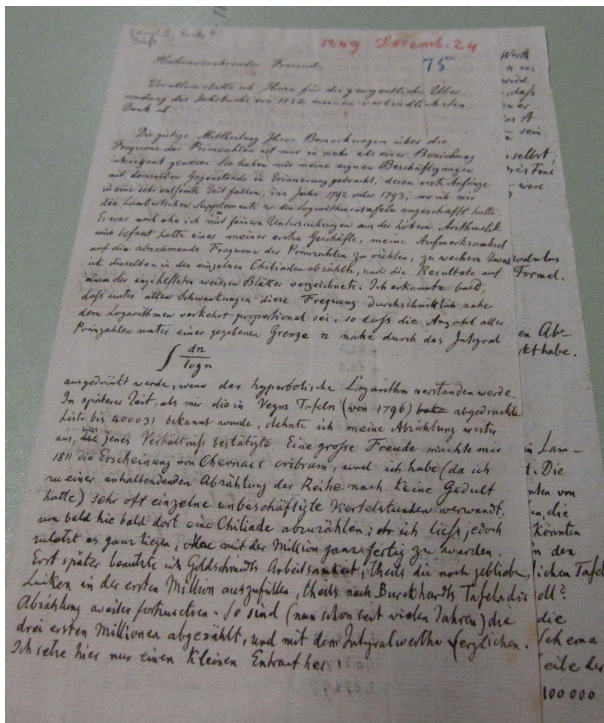 1849 Decemb. 24
75
Hochzuverehrender Freund.
Vor allem statte ich Ihnen für die gegentliche Über-
sendung des Jahrbuchs von 1852 meinen verbindlichsten
Dank ab.
Die gütige Mittheilung Ihrer Bemerkungen über die
Frequenz der Primzahlen ist mir in mehr als einer Beziehung
interessant gewesen. Sie haben mir meine eignen Beschäftigungen
mit demselben Gegenstande in Erinnerung gebracht, deren erste Anfänge
in eine sehr entfernte Zeit fallen, ins Jahr 1792 oder 1793, wo ich mir
die Lambertschen Supplemente zu den Logarithmentafeln angeschafft hatte.
Es war noch ehe ich mit feinern Untersuchungen aus der höhern Arithmetik
mich befasst hatte eines meiner ersten Geschäfte, meine Aufmerksamkeit
auf die abnehmende Frequenz der Primzahlen zu richten, zu welchem Zweck
ich dieselben in den einzelnen Chiliaden abzählte, und die Resultate auf
einem der angehefteten weissen Blätter verzeichnete. Ich erkannte bald,
dass unter allen Schwankungen diese Frequenz durchschnittlich nahe
dem Logarithmen verkehrt proportional sei, so dass die Anzahl aller
Primzahlen unter einer gegebenen Grenze n nahe durch das Integral
∫ dn/log n
ausgedrückt werde, wenn der hyperbolische Logarithm verstanden werde.
In späterer Zeit, als mir die in Vegas Tafeln (von 1796) abgedruckte
Liste bis 400031 bekannt wurde, dehnte ich meine Abzählung weiter
aus, was jenes Verhältniß bestätigte. Eine große Freude machte mir
1811 die Erscheinung von Chernacs cribrum, und ich habe (da ich
zu einer anhaltenden Abzählung der Reihe nach keine Geduld
hatte) sehr oft einzelne unbeschäftigte Viertelstunden verwandt,
um bald hie bald dort eine Chiliade abzuzählen; ich liess jedoch
zuletzt es ganz liegen, ohne mit der Million ganz fertig zu werden.
Erst später benutzte ich Goldschmidts Arbeitsamkeit, theils die noch gebliebenen
Lücken in der ersten Million auszufüllen, theils nach Burckhardts Tafeln die
Abzählung weiter fortzusetzen. So sind (nun schon seit vielen Jahren) die
drei ersten Millionen abgezählt, und mit dem Integralwerthe verglichen.
Ich setze hier nur einen kleinen Extract her.
Werth
selbst,
Formel.
en Ab-
kt habe.
in Lam-
Die
nten von
die
könnten
in den
lichen Tafel
oll?
die
Schema
eile der
100 000